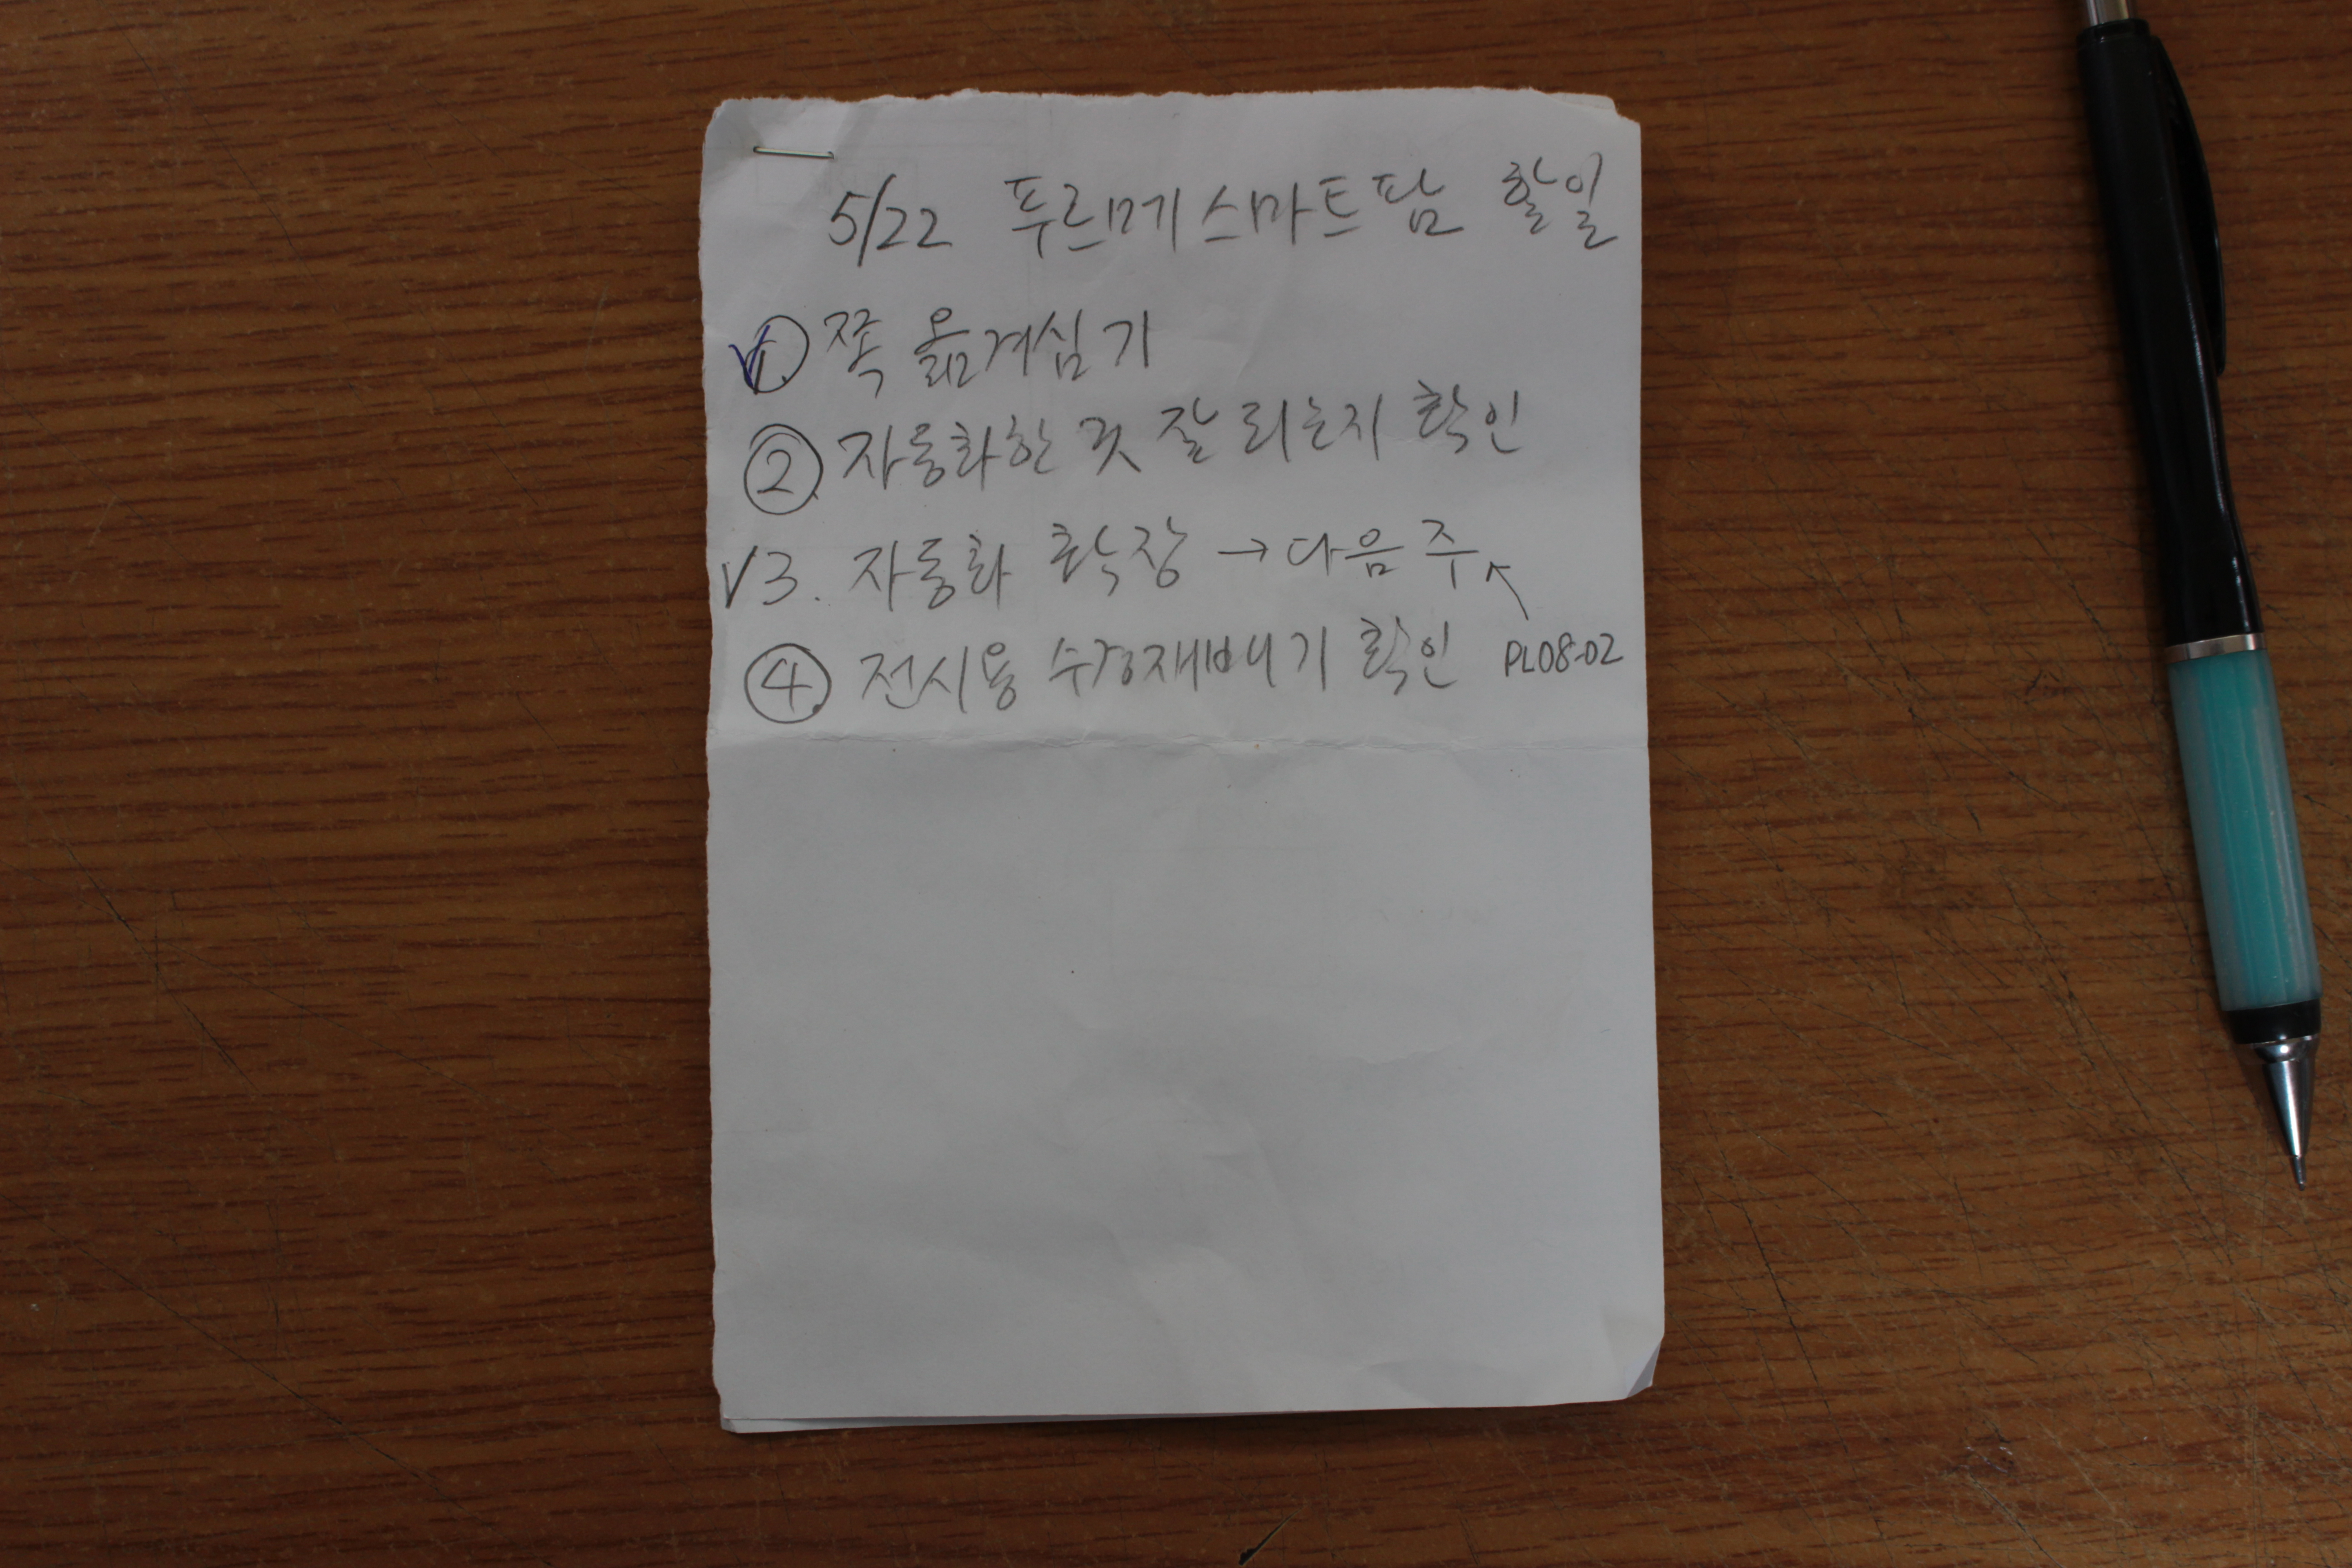 5/22 푸르메스마트팜 할일
V①. 쪽 옮겨심기
② 자동화한 것 잘 되는지 확인
V3. 자동화 확장 → 다음주
④ 전시용 수경재배기 확인 PL08-02